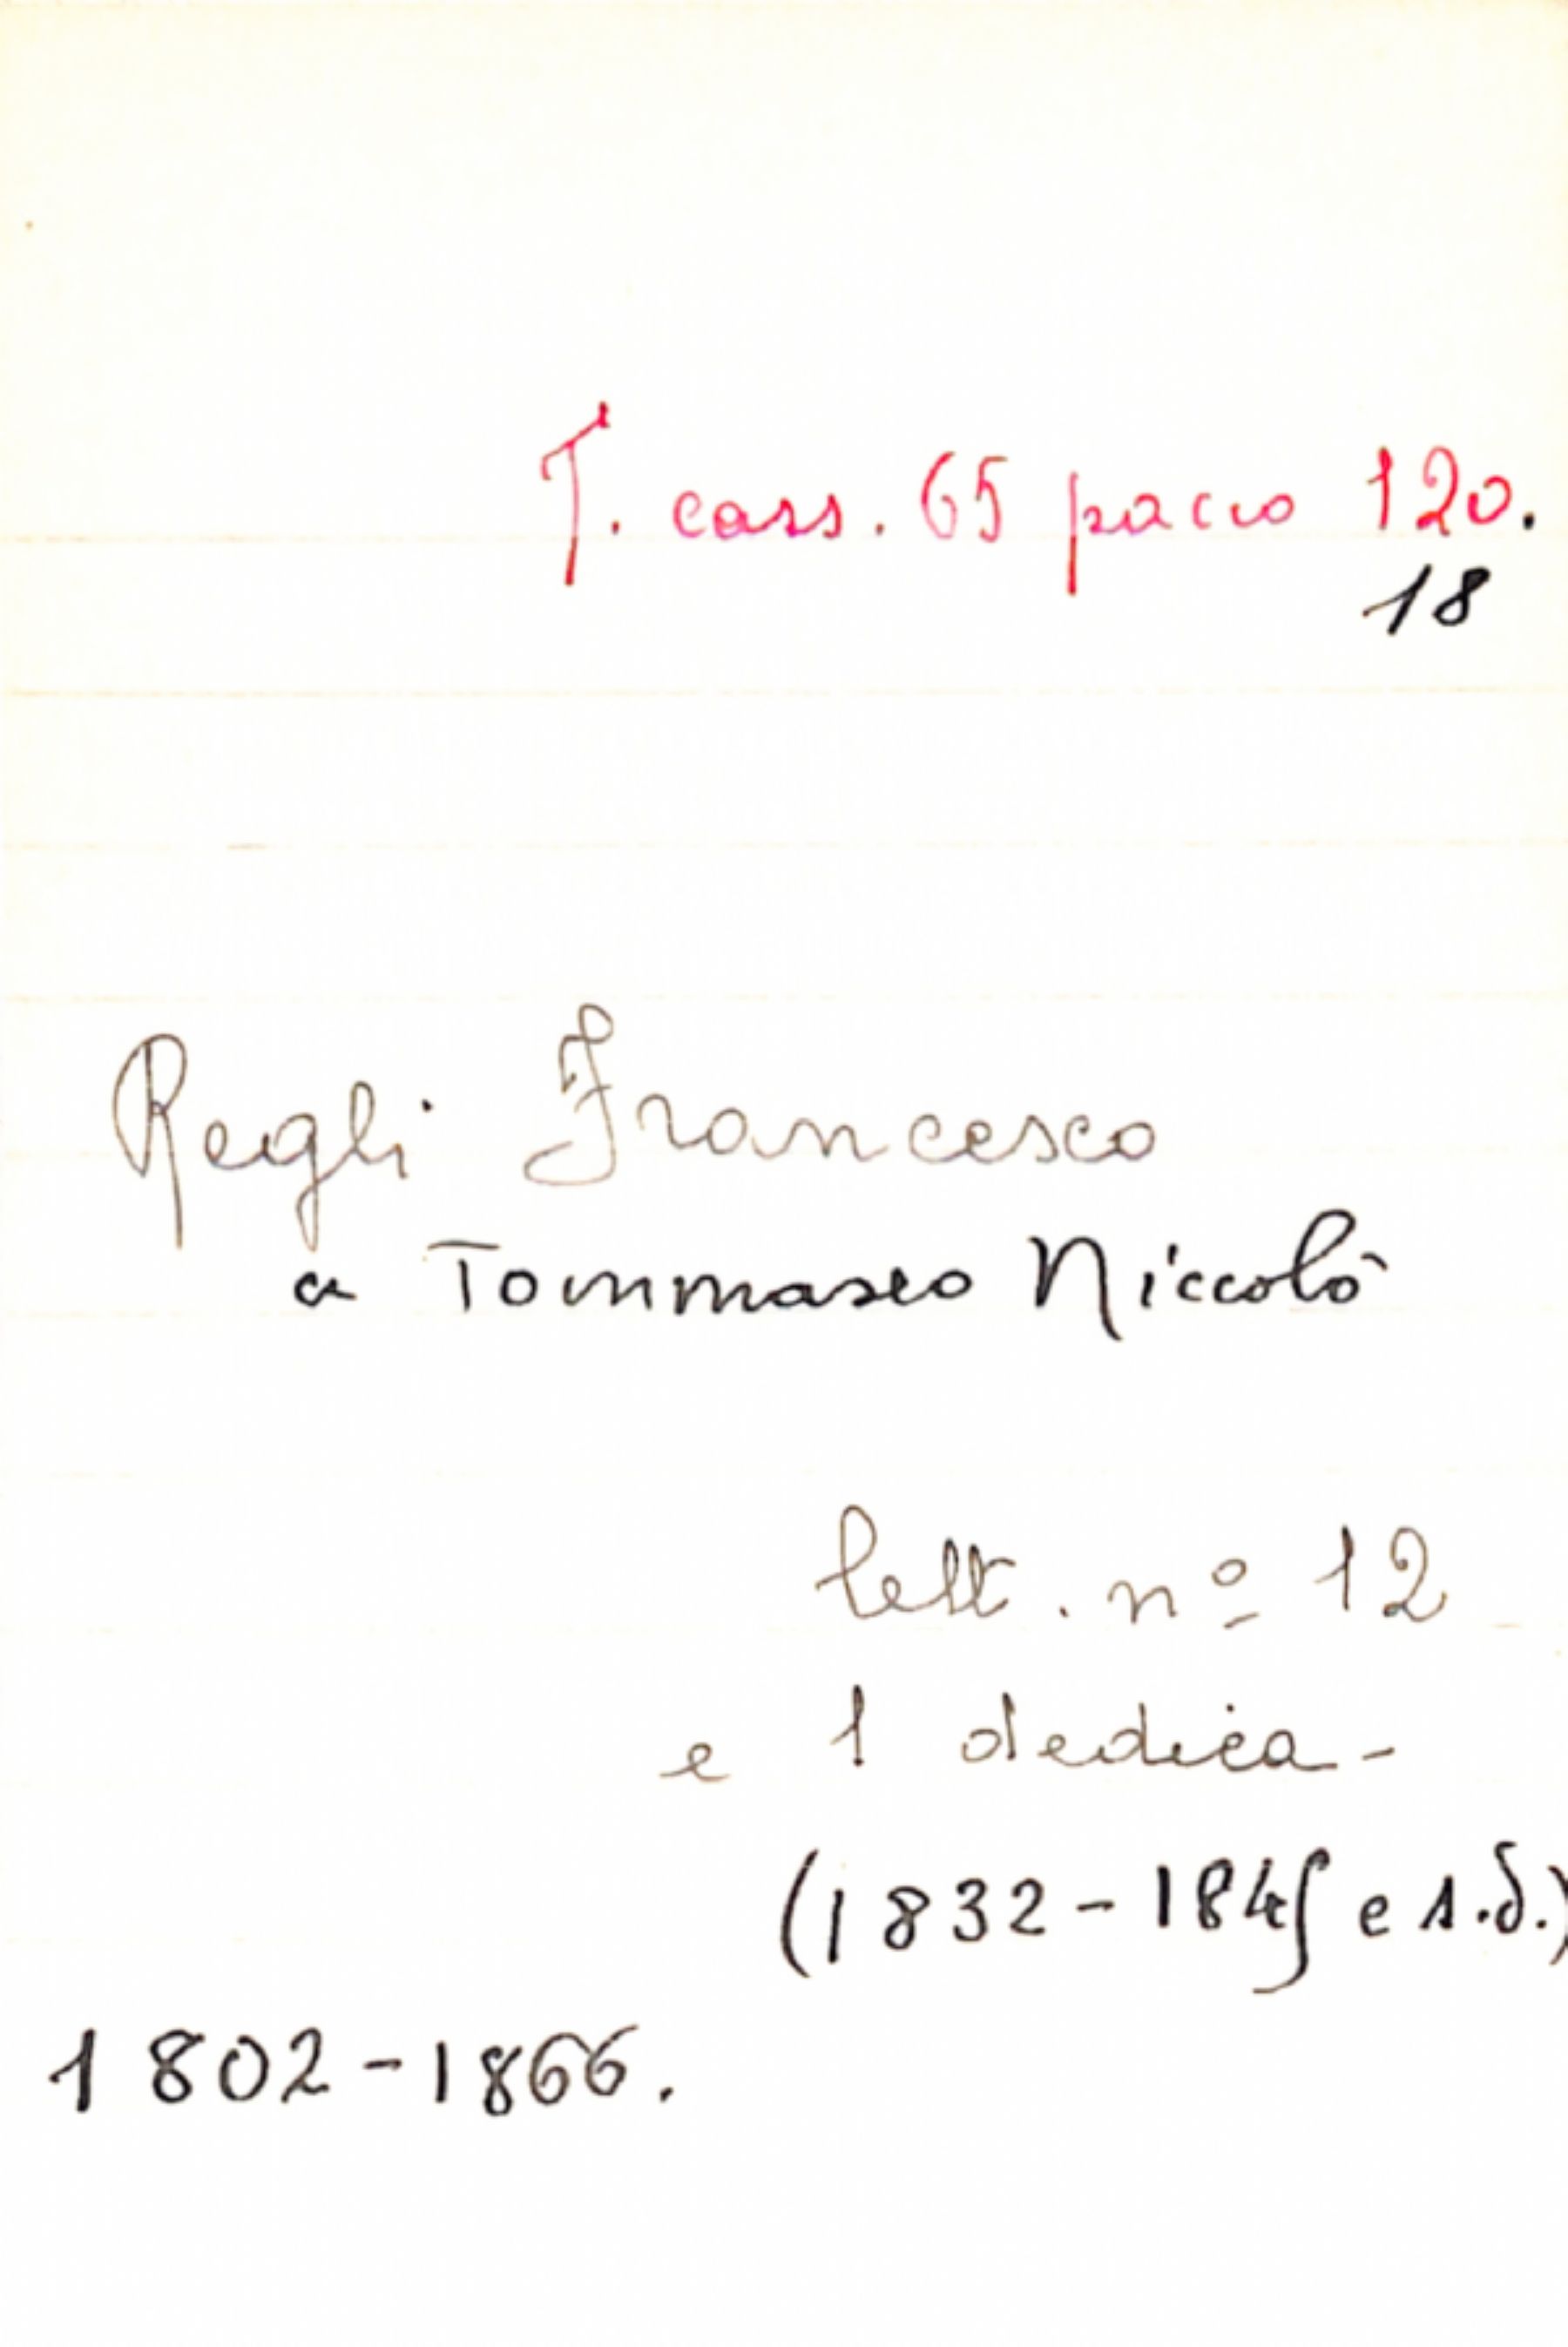 T. cass. 65 pacco 120.
18
Regli Francesco
a Tommaseo Niccolò
lett. nº 12
e 1 dedica-
(1832-1845 e s.d.)
1802-1866.